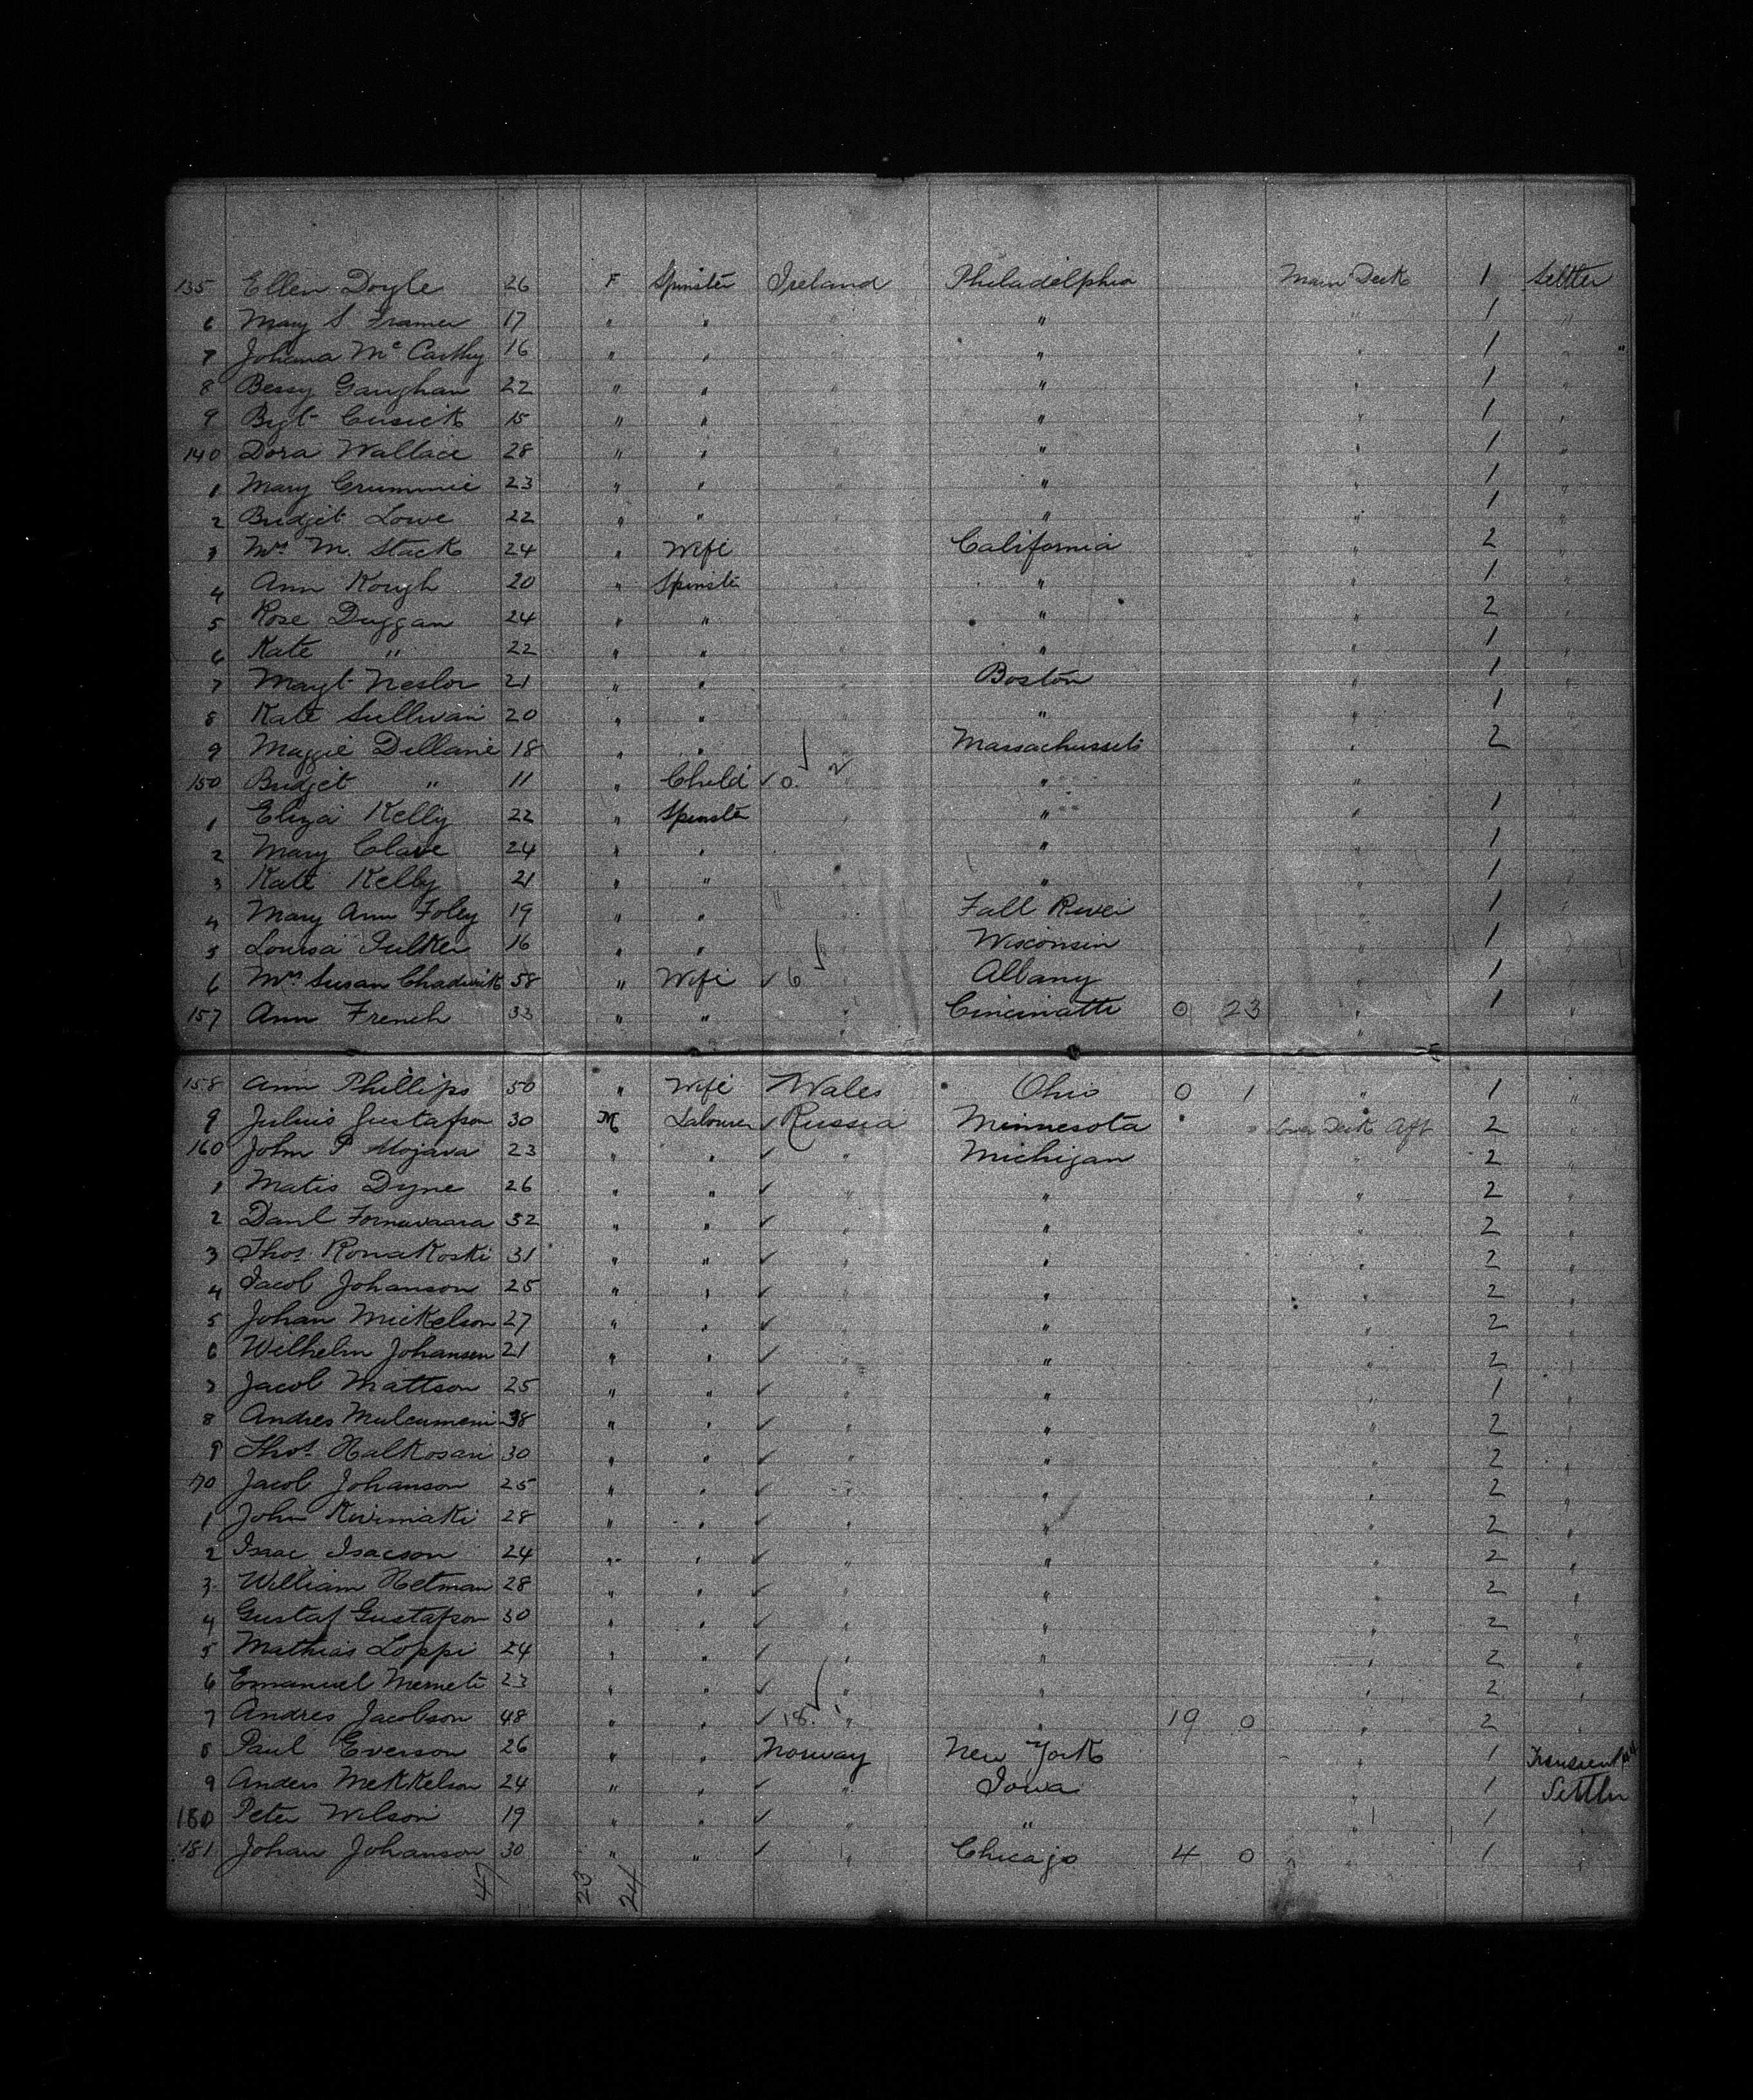 135 Ellen Doyle 26 F Spinster Ireland Philadelphia Main Deck 1 Settler
6 Mary S Framer 17 " " " " " 1 "
7 Johana McCarthy 16 " " " " " 1 "
8 Bessy Gaughan 22 " " " " " 1 "
9 Bigt Cusick 15 " " " " " 1 "
140 Dora Wallace 28 " " " " " 1 "
1 Mary Crummie 23 " " " " " 1 "
2 Bridjet Lowe 22 " " " " " 1 "
3 Mrs M. Stack 24 " Wife " California " 2 "
4 Ann Kough 20 " Spinster " " " 1 "
5 Rose Duggan 24 " " " " " 2 "
6 Kate " 22 " " " " " 1 "
7 Margt Neslor 21 " " " Boston " 1 "
8 Kate Sullivan 20 " " " " " 1 "
9 Maggie Dillane 18 " " " Massachussets " 2 "
150 Bridjet " 11 " Child 0 " " "
1 Eliza Kelly 22 " Spinster " " " 1 "
2 Mary Clare 24 " " " " " 1 "
3 Kate Kelly 21 " " " " " 1 "
4 Mary Ann Foley 19 " " " Fall River " 1 "
5 Louisa 16 " " " Wisconsin " 1 "
6 Mrs Susan Chadwick 58 " Wife ✓ 6 " Albany " 1 "
157 Ann French 33 " " " Cincinatti 0 23 " 1 "
158 Ann Phillips 50 " Wife Wales Ohio 0 1 " 1 "
9 Julius Gustafson 30 M Labourer ✓ Russia Minnesota Lower Deck Aft 2 "
160 John P Mojava 23 " " ✓ " Michigan " 2 "
1 Matis Dyne 26 " " ✓ " " " 2 "
2 Danl Fornavaara 32 " " ✓ " " " 2 "
3 Thos Ronakoski 31 " " ✓ " " " 2 "
4 Jacob Johanson 25 " " ✓ " " " 2 "
5 Johan Mickelson 27 " " ✓ " " " 2 "
6 Wilhelm Johansen 21 " " ✓ " " " 2 "
7 Jacob Mattson 25 " " ✓ " " " 1 "
8 Andres 38 " " ✓ " " " 2 "
9 Thos Halkosari 30 " " ✓ " " " 2 "
70 Jacob Johanson 25 " " ✓ " " " 2 "
1 John Kivimaki 28 " " ✓ " " " 2 "
2 Isaac Isacson 24 " " ✓ " " " 2 "
3 William Hetman 28 " " ✓ " " " 2 "
4 Gustaf Gustafson 30 " " ✓ " " " 2 "
5 Mathias Loppi 24 " " ✓ " " " 2 "
6 Emanuel Memeti 23 " " ✓ " " " 2 "
7 Andres Jacobson 48 " " ✓ 18 " " 19 0 " 2 "
8 Paul Everson 26 " " Norway New York " 1 Transient
9 Anders Mekkelson 24 " " ✓ " Iowa " 1 Settler
180 Peter Wilson 19 " " ✓ " " " 1 "
181 Johan Johanson 30 " " ✓ " Chicajo 4 0 " 1 "
47 23 24